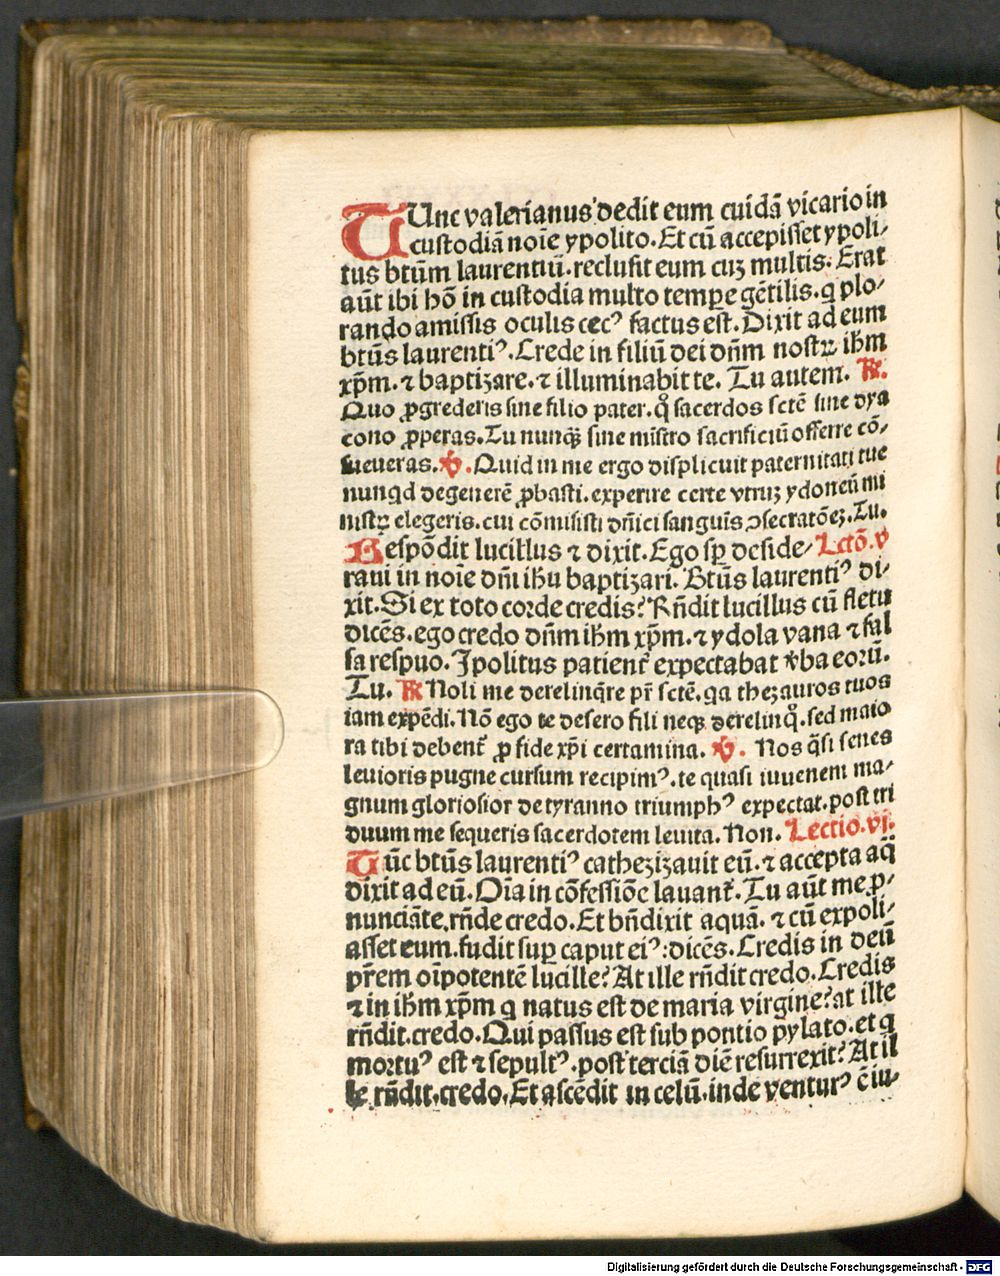 TUnc valerianus dedit eum cuidā vicario in
custodiā noīe ypolito. Et cū accepisset ypoli/
tus btūm laurentiū. reclusit eum cuȝ multis. Erat
aūt ibi hō in custodia multo tempꝛe gētilis. q plo/
rando amissis oculis cecꝰ factus est. Dixit ad eum
btūs laurentiꝰ. Crede in filiū dei dn̄m nostꝝ ihm̄
xp̄m. ⁊ baptizare. ⁊ illuminabit te. Tu autem. ℟.
Quo ꝓgrederis sine filio pater. qͦ sacerdos sctē sine dya
cono ꝓperas. Tu nunqꝫ sine mīstro sacrificiū offerre cō/
sueueras. ℣. Quid in me ergo displicuit paternitati tue
nunqd degenerē ꝓbasti. experire certe vtruȝ ydoneū mi
nistꝝ elegeris. cui cōmisisti dn̄ici sanguīs ꝯsecratōeȝ. Tu.
Respōdit lucillus ⁊ dixit. Ego sꝑ deside/ Lctō. v
raui in noīe dn̄i ihu baptizari. Btūs laurentiꝰ di/
xit. Si ex toto corde credis? Rn̄dit lucillus cū fletu
dicēs. ego credo dn̄m ihm̄ xp̄m. ⁊ ydola vana ⁊ fal
sa respuo. Ipolitus patient᷑ expectabat v̓ba eorū.
Tu. ℟ Noli me derelinq̄re pr̄ sctē. qa thezauros tuos
iam expēdi. Nō ego te desero fili neqꝫ derelinqͦ. sed maio
ra tibi debent᷑ ꝓ fide xp̄i certamina. ℣. Nos q̄si senes
leuioris pugne cursum recipimꝰ. te quasi iuuenem ma/
gnum gloriosior de tyranno triumphꝰ expectat. post tri
duum me sequeris sacerdotem leuita. Non. Lectio. vi.
Tūc btūs laurentiꝰ cathezizauit eū. ⁊ accepta aq̄
dixit ad eū. Oīa in cōfessiōe lauant᷑. Tu aūt me ꝑ/
nunciāte. rn̄de credo. Et bn̄dixit aquā. ⁊ cū expoli/
asset eum. fudit suꝑ caput eiꝰ: dicēs. Credis in deū
pr̄em oīpotentē lucille? At ille rn̄dit credo. Credis
⁊ in ihm̄ xp̄m q natus est de maria virgine? at ille
rn̄dit. credo. Qui passus est sub pontio pylato. et q
mortuꝰ est ⁊ sepultꝰ. post terciā diē resurrexit? At il
le rn̄dit. credo. Et ascēdit in celū. inde venturꝰ ē iu/
Digitalisierung gefördert durch die Deutsche Forschungsgemeinschaft - DFG